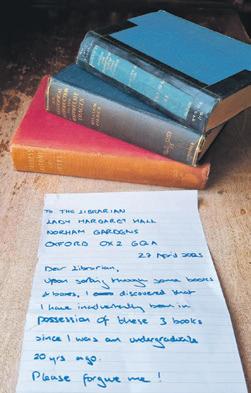 TO THE LIBRARIAN
LADY MARGARET HALL
NORHAM GARDENS
OXFORD OX2 6QA
27 April 2025
Dear Librarian,
Upon sorting through some books
& boxes, I discovered that
I have inadvertently been in
possession of these 3 books
since I was an undergraduate
20 yrs ago.
Please forgive me!